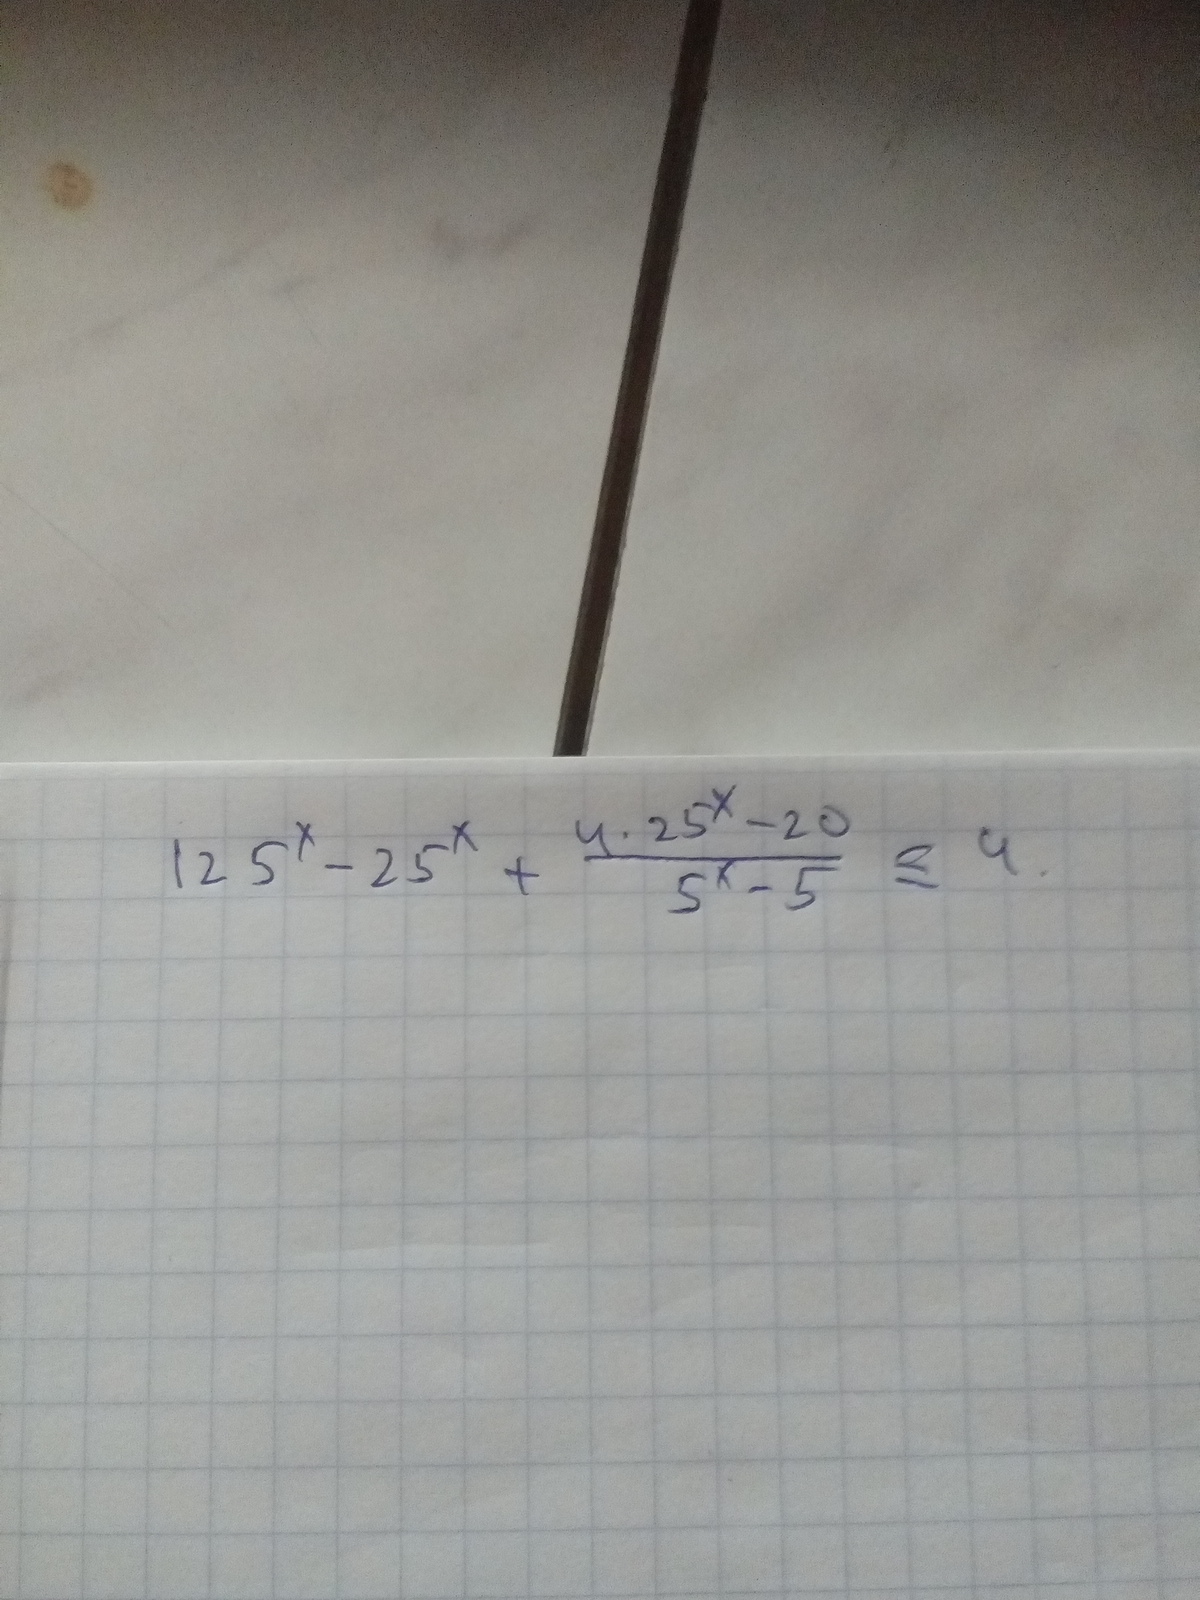 125^x - 25^x + \frac{4 \cdot 25^x - 20}{5^x - 5} ≤ 4.